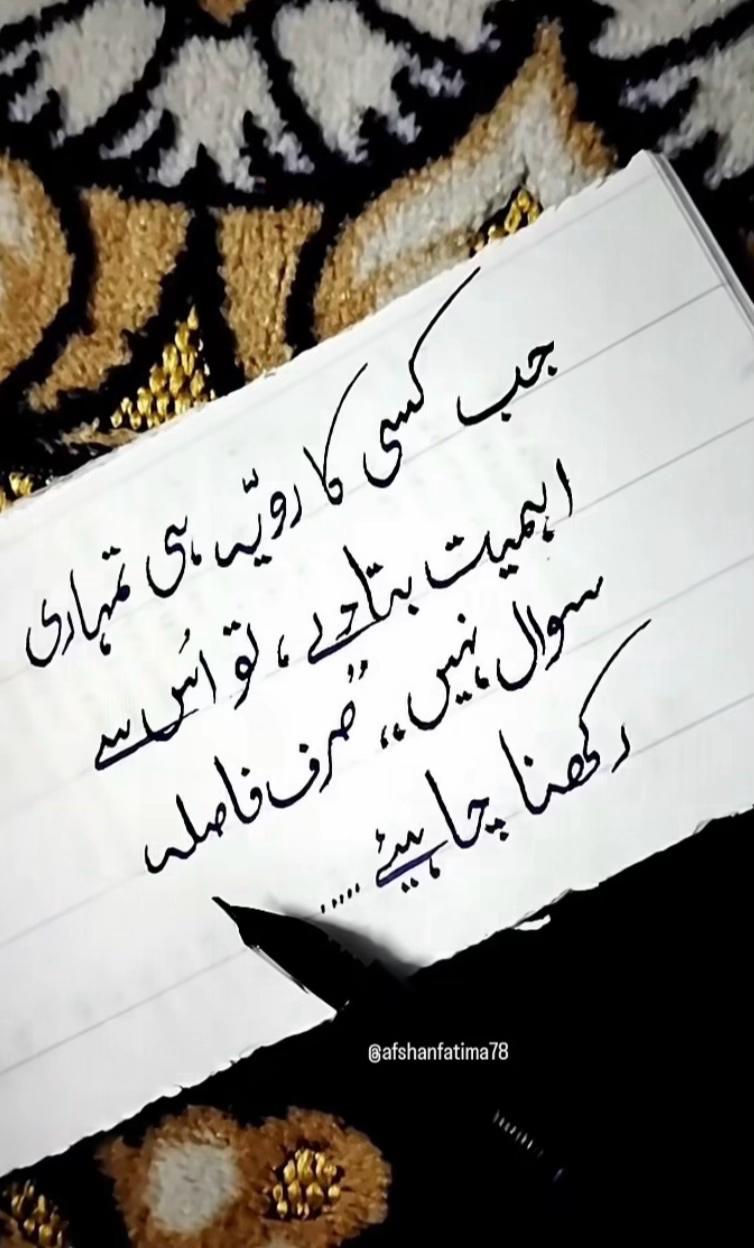 جب کسی کا رویّہ ہی تمہاری
اہمیت بتا دے، تو اُس سے
سوال نہیں،، "صرف فاصلہ
رکھنا چاہیئے.....
@afshanfatima78